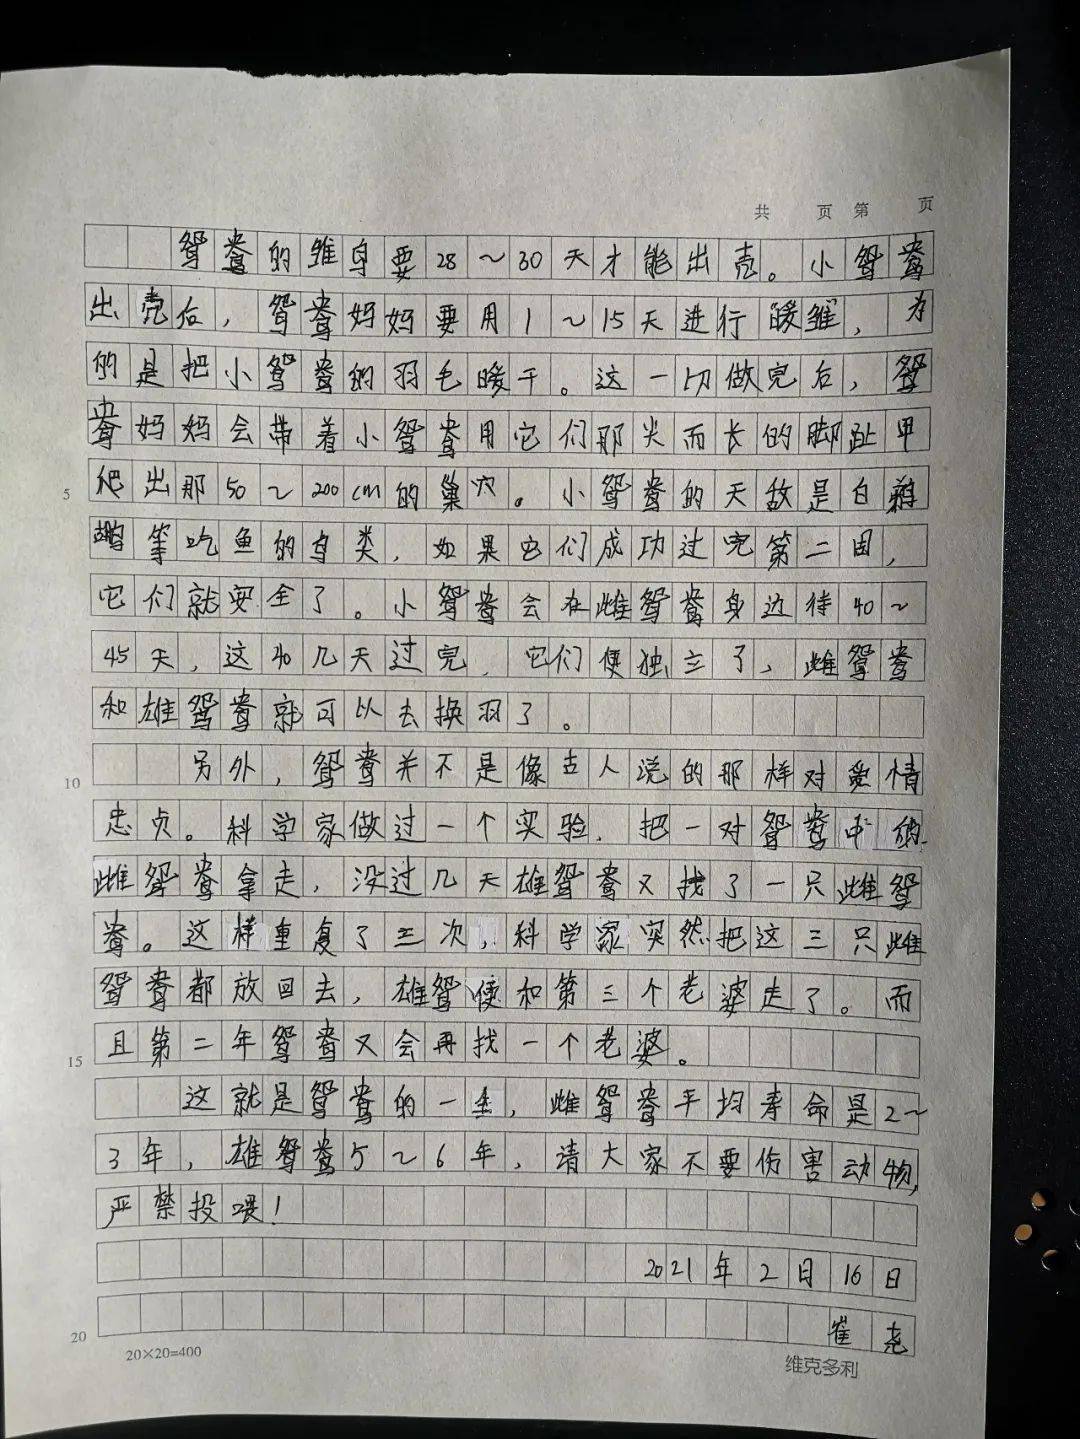 共 页 第 页
鸳鸯的雏鸟要28~30天才能出壳。小鸳鸯
出壳后，鸳鸯妈妈要用1~15天进行暖雏，为
的是把小鸳鸯的羽毛暖干。这一切做完后，鸳
鸯妈妈会带着小鸳鸯用它们那尖而长的脚趾甲
5 爬出那50~200cm的巢穴。小鸳鸯的天敌是白鹈
鹕等吃鱼的鸟类，如果它们成功过完第二周，
它们就安全了。小鸳鸯会在雌鸳鸯身边待40~
45天，这40几天过完，它们便独立了，雌鸳鸯
和雄鸳鸯就可以去换羽了。
10 另外，鸳鸯并不是像古人说的那样对爱情
忠贞。科学家做过一个实验，把一对鸳鸯中的
雌鸳鸯拿走，没过几天雄鸳鸯又找了一只雌鸳
鸯。这样重复了三次，科学家突然把这三只雌
鸳鸯都放回去，雄鸳便和第三个老婆走了。而
15 且第二年鸳鸯又会再找一个老婆。
这就是鸳鸯的一生，雌鸳鸯平均寿命是2~
3年，雄鸳鸯5~6年，请大家不要伤害动物，
严禁投喂！
2021年2月16日
20 崔尧
20×20=400 维克多利